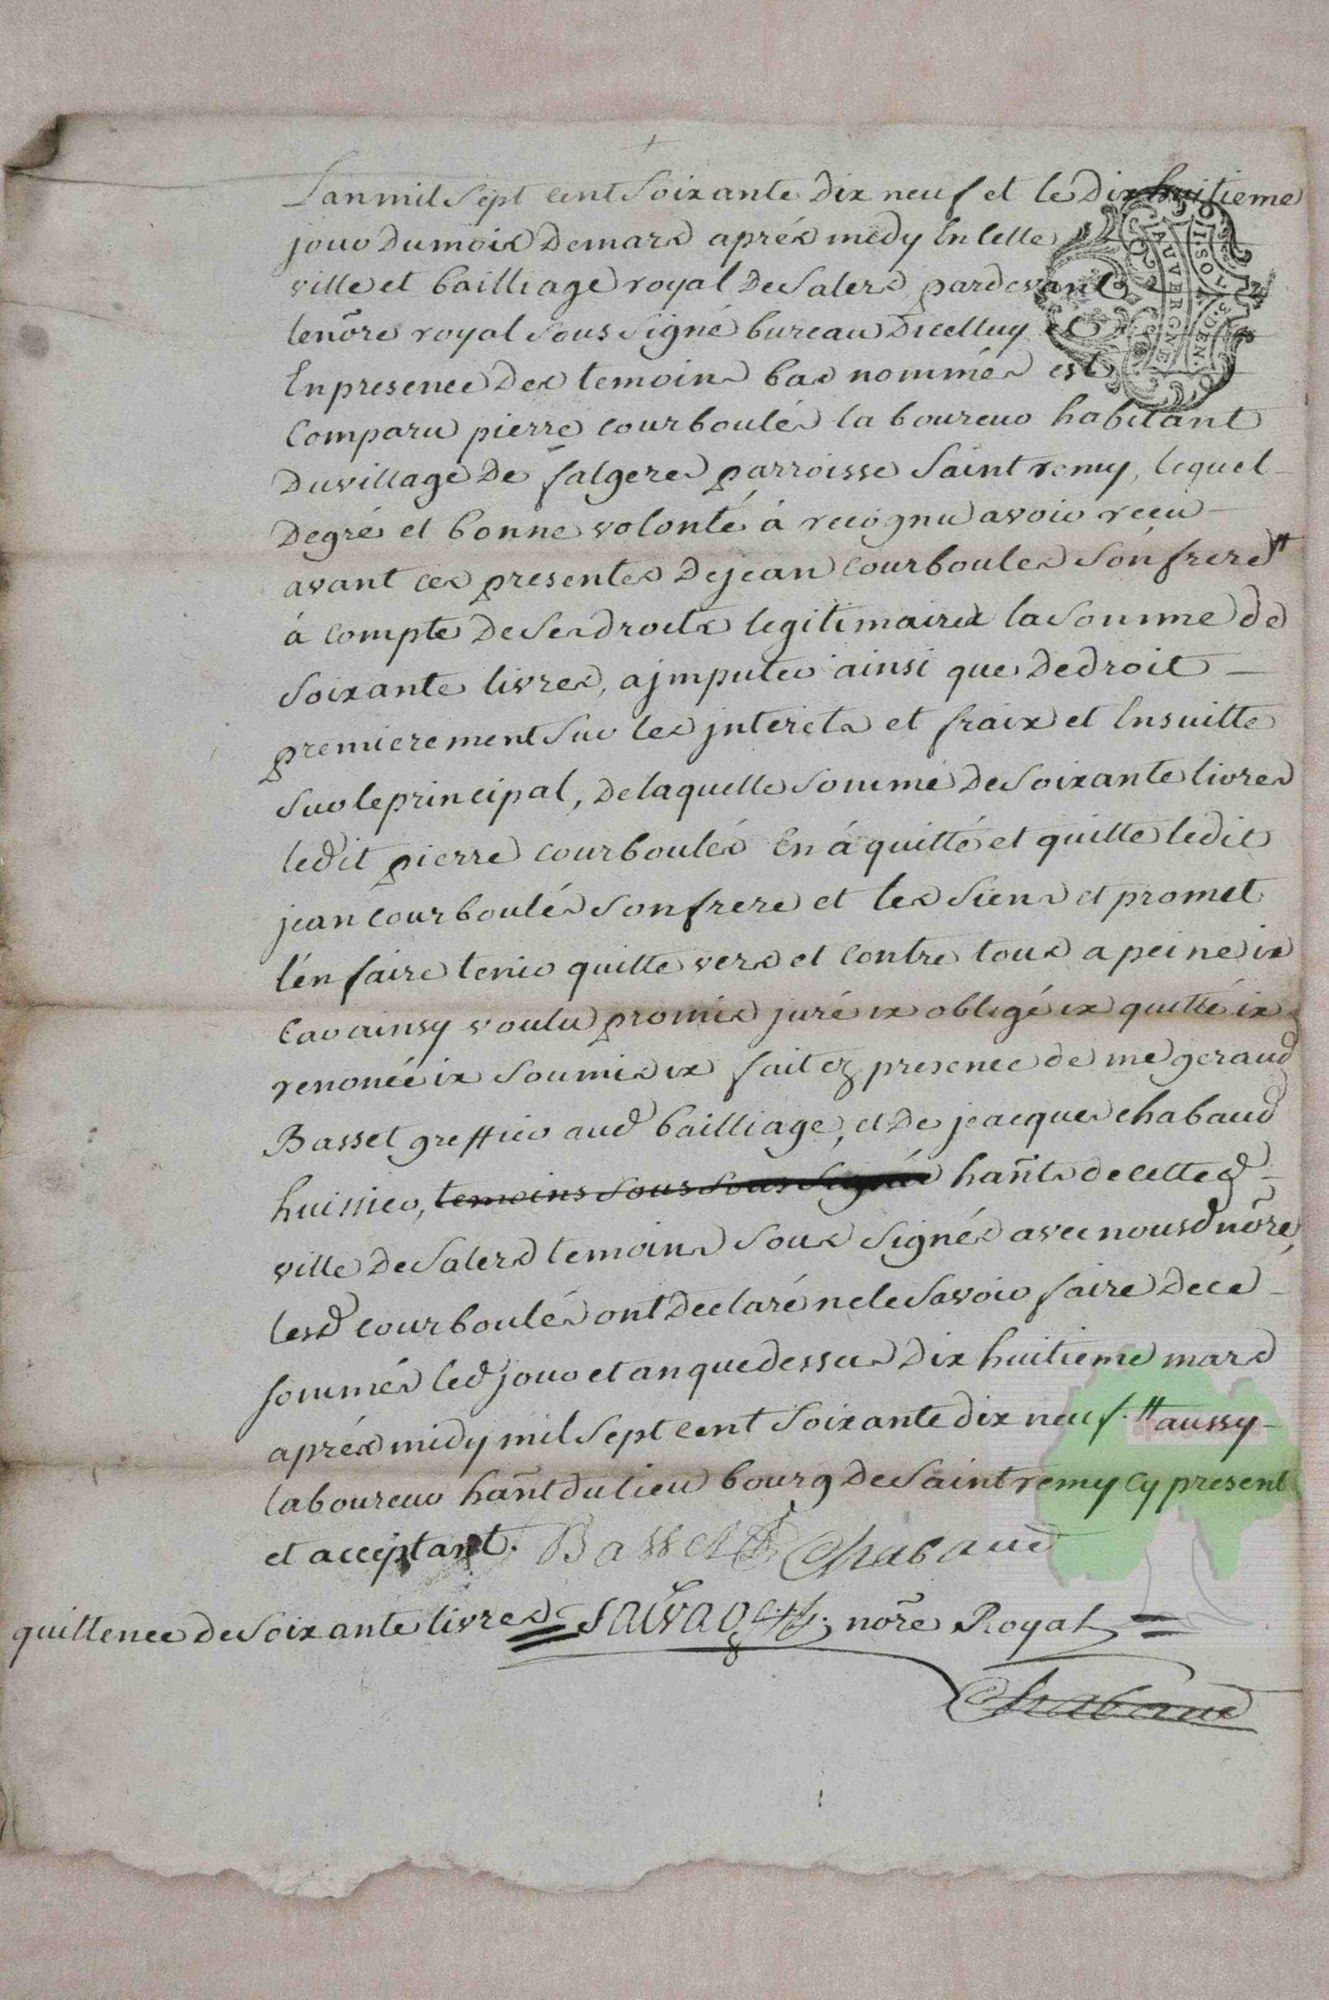 Lan mil Sept cent Soixante Dix neuf et le Dix huitieme
jour Du mois De mars aprés midy En cette
ville et bailliage royal De Salers pardevant
le nore royal Sous Signé bureau Dicelluy et
En presence Des temoins bas nommés est
Comparu pierre courboulés laboureur habitant
Du village De falgeres parroisse Saint remy, lequel
De gré et bonne volonté à recognu avoir receu
avant ces presentes De jean courboules Son frere #
à compte De Ses droits legitimaires la Somme de
Soixante livres, a jmputer ainsi que De droit
premierement Sur les jnterets et fraix et Ensuitte
Sur le principal, De laquelle Somme De Soixante livres
ledit pierre courboulés En à quitté et quitte ledit
jean courboulés Son frere et les Siens et promet
l'en faire tenir quitte vers et contre tous a peine ix
Car ainsy voulu promis juré ix obligé ix quitté ix
renoncé ix Soumis ix fait ez presence de me geraud
Basset greffier aud bailliage, et De jeacques chabaud
huissier, temoins Sous Sous Signés hants de cette d
ville De Salers temoins Sous Signés avec nous d nore,
lesd courboulés ont Declaré ne le Savoir faire De ce
Sommés led jour et an que dessus Dix huitieme mars
aprés midy mil Sept cent Soixante dix neuf. # aussy
laboureur hant Du lieu bourg De Saint remy Cy present
et acceptant. Basset Chabaud
quittence De Soixante livres Sauvage; nore Royal
Chabaud
AUVERGNE